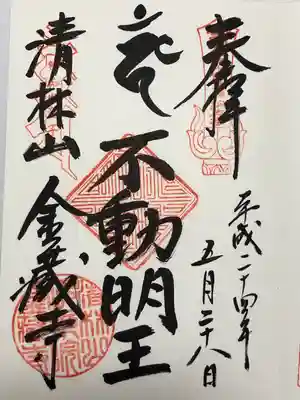 奉拝
平成二十四年
五月二十八日
不動明王
清林山
金蔵寺